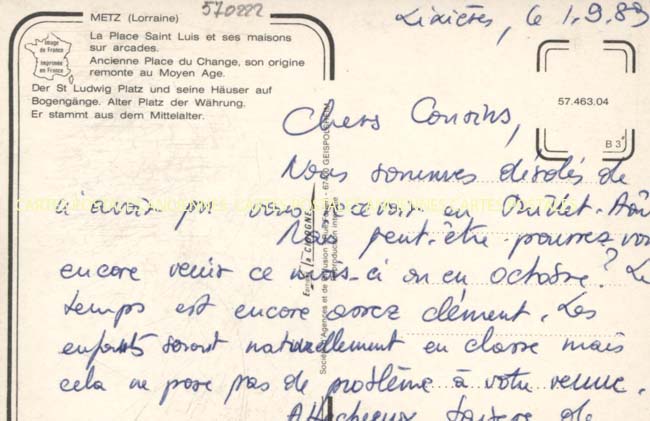 570222
METZ (Lorraine)
La Place Saint Luis et ses maisons
sur arcades.
Ancienne Place du Change, son origine
remonte au Moyen Age.
Der St Ludwig Platz und seine Häuser auf
Bogengänge. Alter Platz der Währung.
Er stammt aus dem Mittelalter.
Image
de France
Imprimée
en France
57.463.04
B 3
Lixières, le 1.9.89
Chers Cousins,
Nous sommes désolés de
n'avoir pu vous recevoir en Juillet-Aoû
Mais peut-être pourrez vou
encore venir ce mois-ci ou en octobre? Le
temps est encore assez clément. Les
enfants seront naturellement en classe mais
cela ne pose pas de problème à votre venue.
Affectueux baisers de
Editions la CIGOGNE